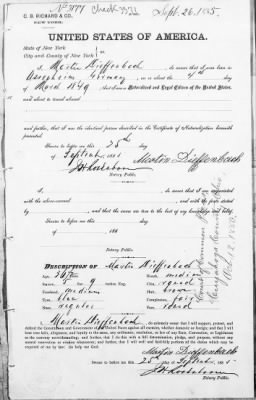 C. B. RICHARD & CO.
NEW YORK.
Sept. 26. 1885.
UNITED STATES OF AMERICA.
State of New York
City and County of New York
I, Martin Dieffenbach do swear that I was born in
Germany, on or about the 4th day
of March 1849 that I am a Naturalized and Legal Citizen of the United States,
and about to travel abroad
and further, that I am the identical person described in the Certificate of Naturalization herewith
presented.
Sworn to before me this 25th day
of September 188 Martin Dieffenbach
Notary Public.
I, do swear that I am acquainted
with the above-named and with the facts stated
by and that the same are true to the best of my knowledge and belief.
Sworn to before me this day
of 188
Notary Public.
DESCRIPTION OF Martin Dieffenbach
Age,
Stature, 5 9
Forehead, medium
Eyes, blue
Nose, regular
Mouth, medium
Chin, round
Hair,
Complexion, fair
Face,
I, Martin Dieffenbach do solemnly swear that I will support, protect, and
defend the Constitution and Government of the United States against all enemies, whether domestic or foreign; and that I will
bear true faith, allegiance, and loyalty to the same, any ordinance, resolution, or law of any State, Convention, or Legislature
to the contrary notwithstanding; and further, that I do this with a full determination, pledge, and purpose, without any
mental reservation or evasion whatsoever; and further, that I will well and faithfully perform all the duties which may be
required of me by law. So help me God.
Martin Dieffenbach
Sworn to before me this
25 day of September 188
Notary Public.